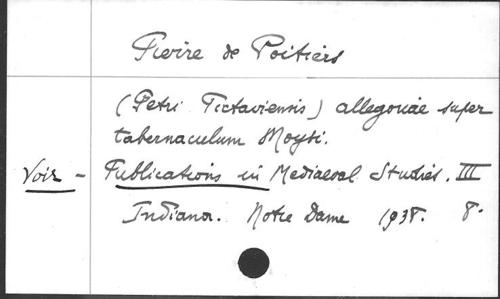 Pierre de Poitiers
(Petri Pictaviensis) allegoriae super
tabernaculum Moysi.
Voir - Publications in Mediaeval Studies. III
Indiana. Notre Dame 1938. 8°